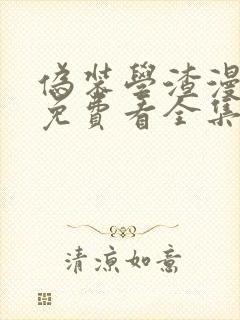 偽裝學渣漫
免費看全集
清涼如意